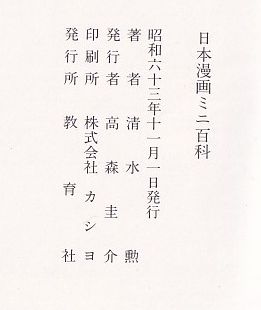 日本漫画ミニ百科
昭和六十三年十一月一日発行
著者 清水勲
発行者 高森圭介
印刷所 株式会社カシヨ
発行所 教育社